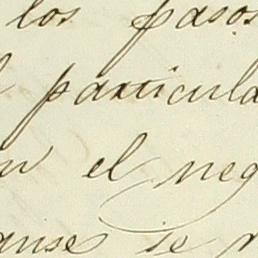 los pasos
particula
el neg
se